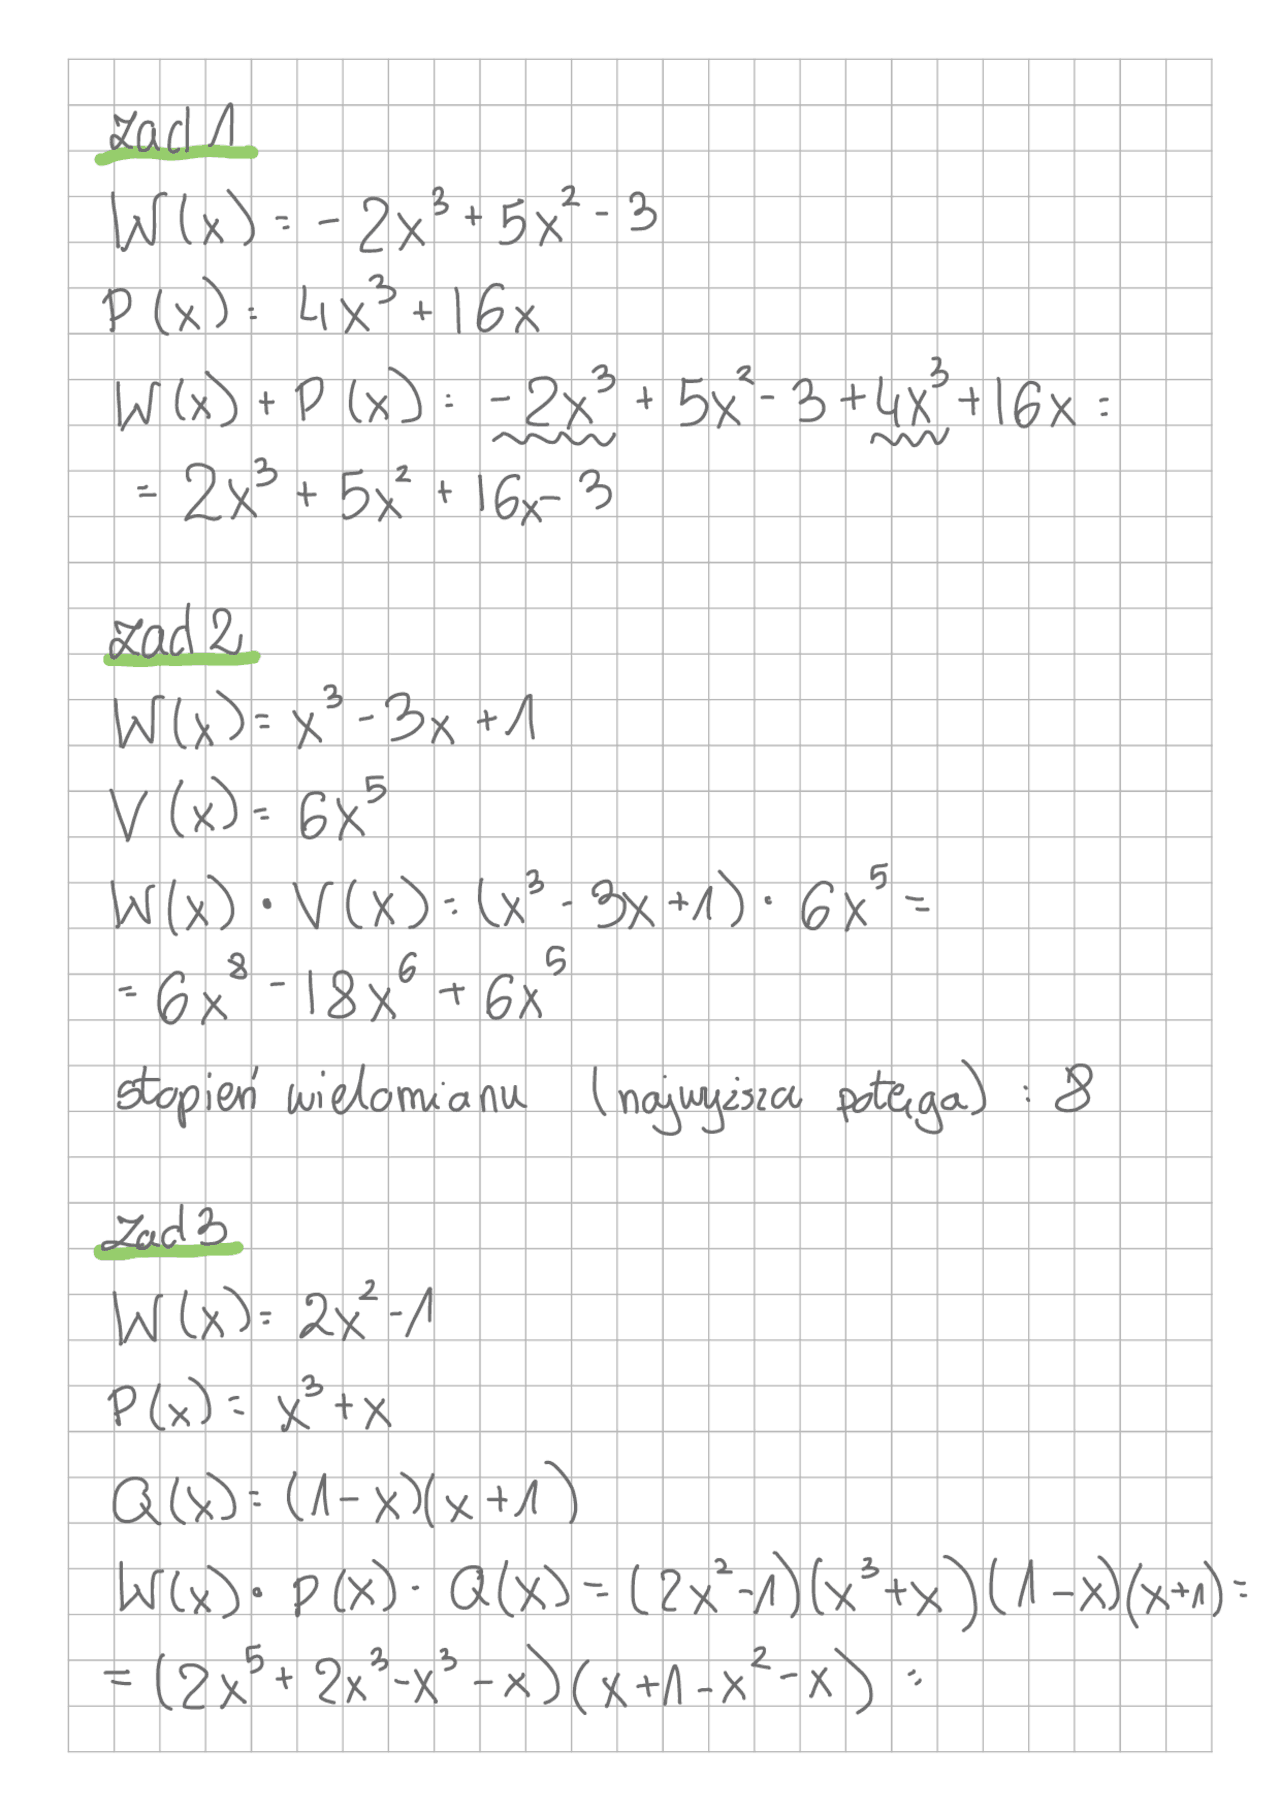 zad 1
W(x) = -2x³ + 5x² - 3
P(x) = 4x³ + 16x
W(x) + P(x) = -2x³ + 5x² - 3 + 4x³ + 16x =
= 2x³ + 5x² + 16x - 3
zad 2
W(x) = x³ - 3x + 1
V(x) = 6x⁵
W(x) · V(x) = (x³ - 3x + 1) · 6x⁵ =
= 6x⁸ - 18x⁶ + 6x⁵
stopień wielomianu (najwyższa potęga) : 8
zad 3
W(x) = 2x² - 1
P(x) = x³ + x
Q(x) = (1 - x)(x + 1)
W(x) · P(x) · Q(x) = (2x² - 1)(x³ + x)(1 - x)(x + 1) =
= (2x⁵ + 2x³ - x³ - x)(x + 1 - x² - x) =